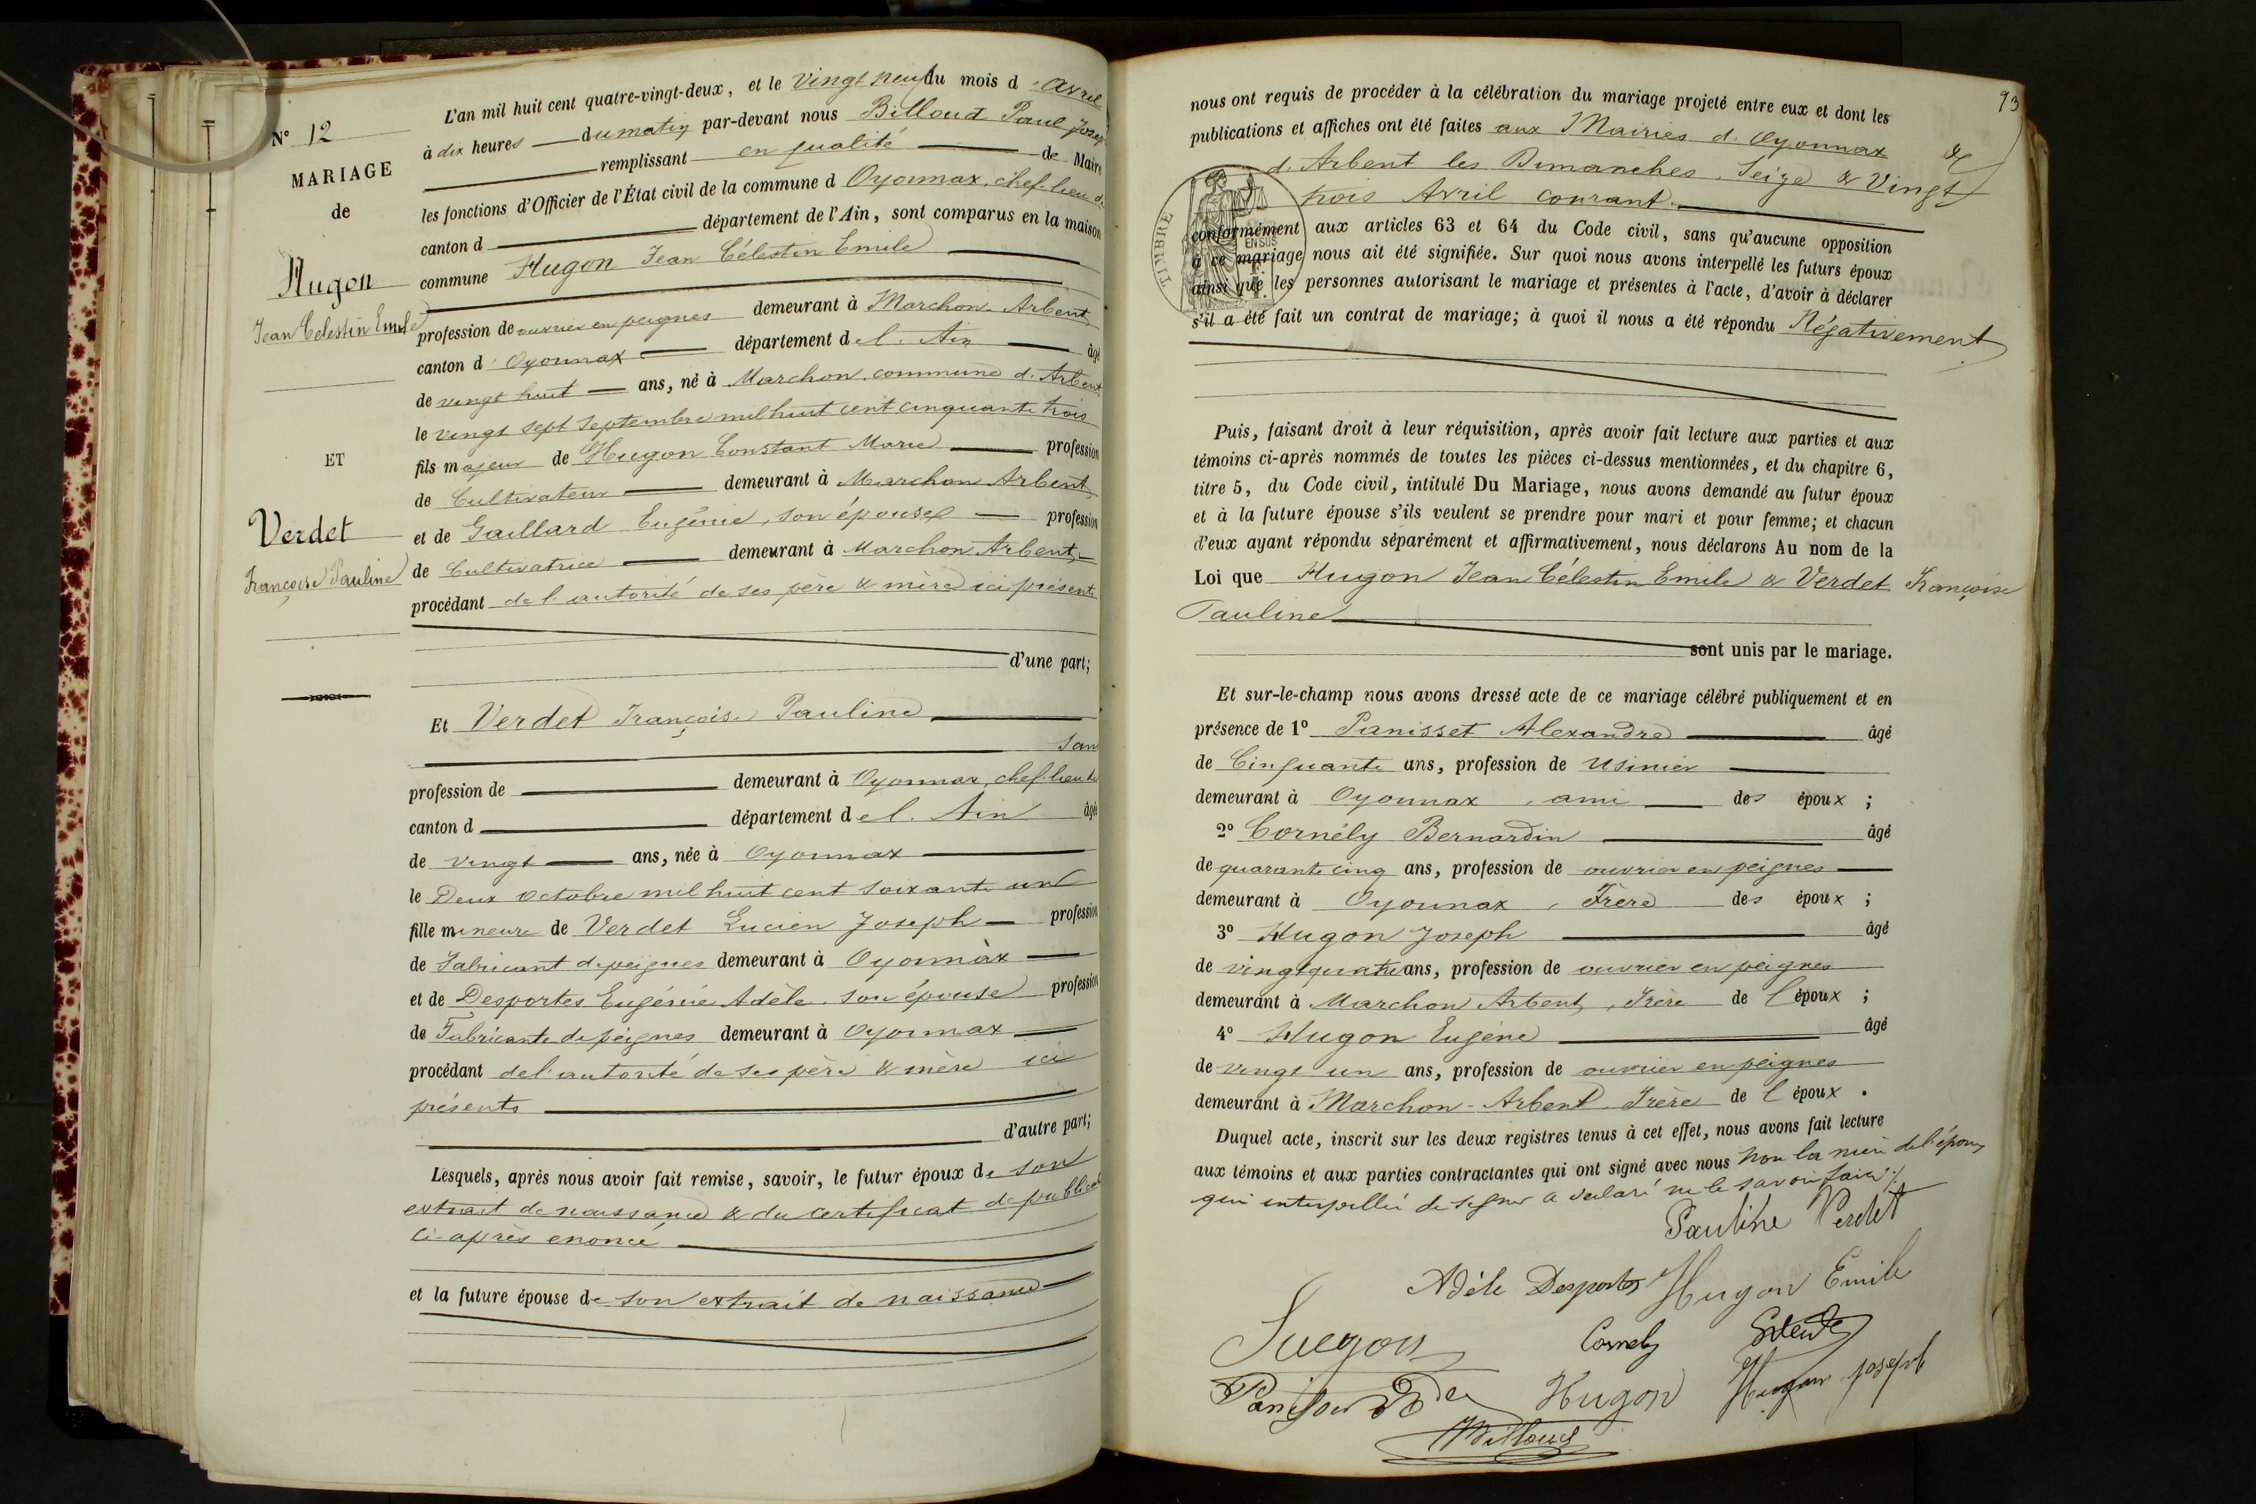 L'an mil huit cent quatre-vingt-deux, et le vingt neuf du mois d'avril
N° 12
à dix heures du matin par-devant nous Billoud Paul Joseph
MARIAGE
remplissant en qualité de Maire
de
les fonctions d'Officier de l'État civil de la commune d Oyonnax, chef-lieu de
canton d département de l'Ain, sont comparus en la maison
Hugon
commune Hugon Jean Célestin Emile
Jean Célestin Emile
profession de ouvrier en peignes demeurant à Marchon-Arbent
canton d'Oyonnax département de l'Ain âgé
de vingt huit ans, né à Marchon, commune d'Arbent
le vingt sept septembre mil huit cent cinquante trois
ET
fils majeur de Hugon Constant Marie profession
de Cultivateur demeurant à Marchon Arbent
Verdet
et de Gaillard Eugénie, son épouse profession
Françoise Pauline
de Cultivatrice demeurant à Marchon Arbent,
procédant de l'autorité de ses père & mère ici présents
d'une part;
Et Verdet Françoise Pauline
san
profession de demeurant à Oyonnax, chef-lieu de
canton d département de l'Ain âgée
de vingt ans, née à Oyonnax
le Deux octobre mil huit cent soixante un
fille mineure de Verdet Lucien Joseph profession
de Fabricant de peignes demeurant à Oyonnax
et de Desportes Eugénie Adèle son épouse profession
de Fabricante de peignes demeurant à Oyonnax
procédant de l'autorité de ses père & mère ici
présents
d'autre part;
Lesquels, après nous avoir fait remise, savoir, le futur époux de son
extrait de naissance & du certificat de publicat
ci-après énoncé
et la future épouse de son extrait de naissance
93
nous ont requis de procéder à la célébration du mariage projeté entre eux et dont les
publications et affiches ont été faites aux Mairies d'Oyonnax &
d'Arbent les Dimanches Seize & Vingt
trois Avril courant.
TIMBRE
EN SUS
conformément aux articles 63 et 64 du Code civil, sans qu'aucune opposition
à ce mariage nous ait été signifiée. Sur quoi nous avons interpellé les futurs époux
ainsi que les personnes autorisant le mariage et présentes à l'acte, d'avoir à déclarer
s'il a été fait un contrat de mariage; à quoi il nous a été répondu Négativement
Puis, faisant droit à leur réquisition, après avoir fait lecture aux parties et aux
témoins ci-après nommés de toutes les pièces ci-dessus mentionnées, et du chapitre 6,
titre 5, du Code civil, intitulé Du Mariage, nous avons demandé au futur époux
et à la future épouse s'ils veulent se prendre pour mari et pour femme; et chacun
d'eux ayant répondu séparément et affirmativement, nous déclarons Au nom de la
Loi que Hugon Jean Célestin Emile & Verdet Françoise
Pauline
sont unis par le mariage.
Et sur-le-champ nous avons dressé acte de ce mariage célébré publiquement et en
présence de 1° Panisset Alexandre âgé
de Cinquante ans, profession de usinier
demeurant à Oyonnax, ami des époux;
2° Cornély Bernardin âgé
de quarante cinq ans, profession de ouvrier en peignes
demeurant à Oyonnax, Frère des époux;
3° Hugon Joseph âgé
de vingt quatre ans, profession de ouvrier en peignes
demeurant à Marchon Arbent, Frère de l'époux;
4° Hugon Eugène âgé
de vingt un ans, profession de ouvrier en peignes
demeurant à Marchon-Arbent, Frère de l'époux.
Duquel acte, inscrit sur les deux registres tenus à cet effet, nous avons fait lecture
aux témoins et aux parties contractantes qui ont signé avec nous non la mère de l'époux
qui interpellée de signer a déclaré ne le savoir faire
Pauline Verdet
Adèle Desportes Hugon Emile
Cornely
Hugon Hugon joseph
Billoud